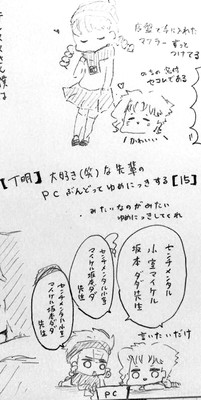 序盤で手に入れた
マフラー ずっと
つけてる
のちの気付
セコムである
かわいい
【丁明】大好き(笑)な先輩の
PC ぶんどってゆめにっきする【15】
・みたいなのがみたい
ゆめにっきしてくれ
センチメンタル
小室マイケル
坂本ダダ先生
センチメンタル小室
マイケル坂本ダダ
先生
センチメンタル小室
マイケル坂本ダダ
先生
言いたいだけ
PC